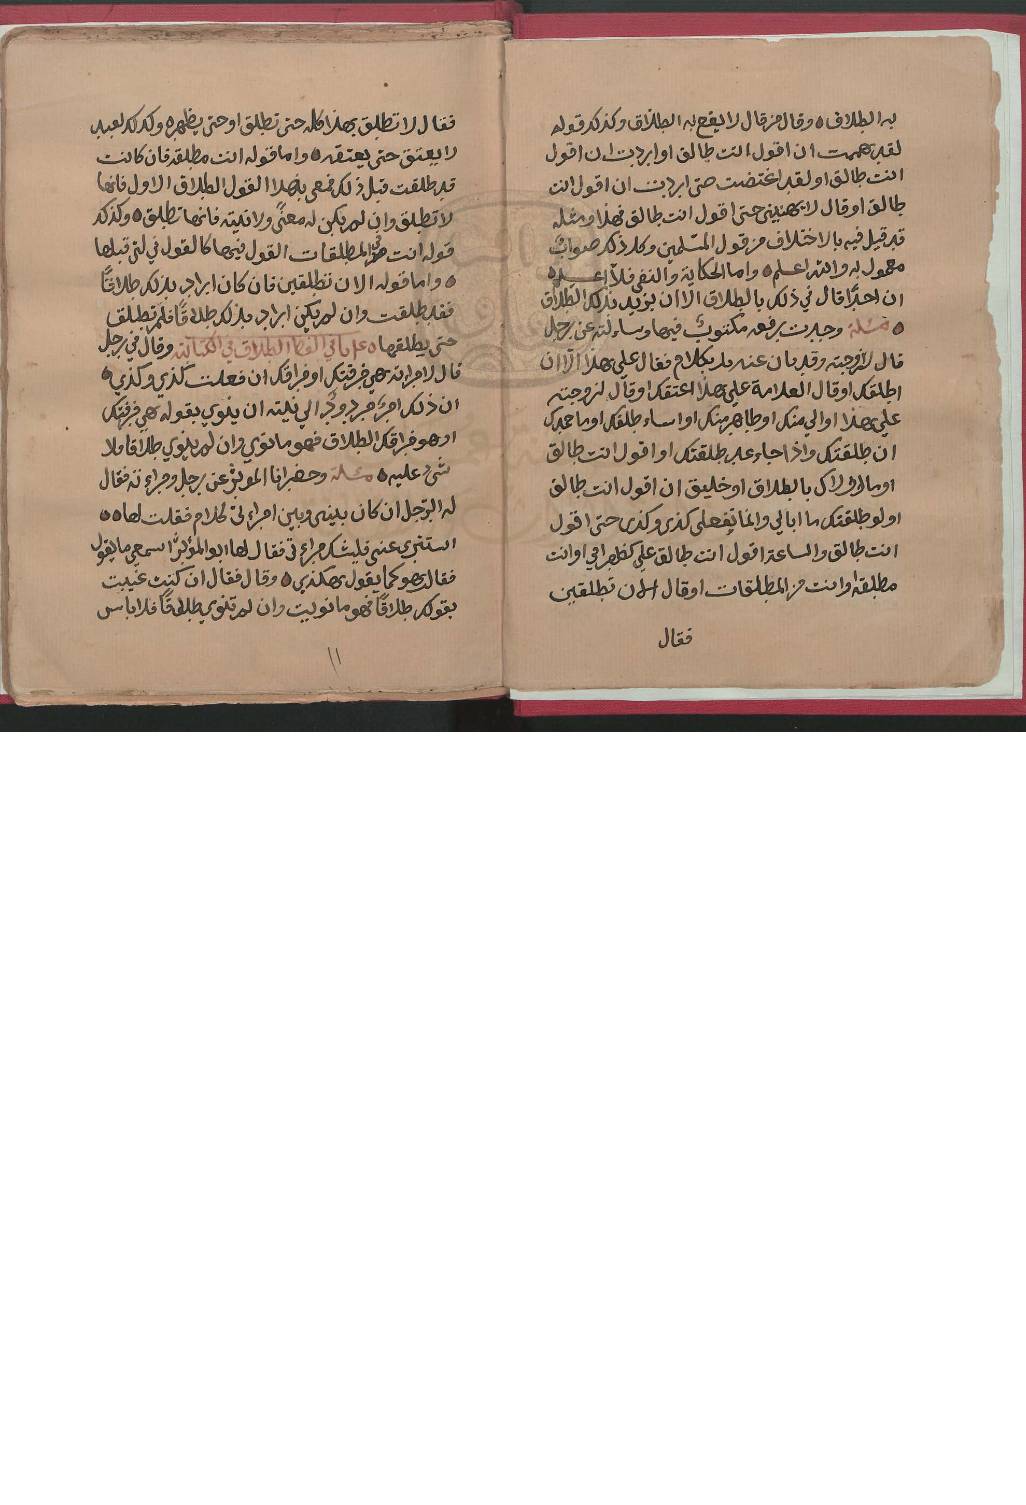 به الطلاق ه وقال من قال لا يقع به الطلاق وكذلك قوله
لقد هممت ان اقول انت طالق او اردت ان اقول
انت طالق او لقد اغتضت حتى اردت ان اقول انت
طالق او قال لا يهنيني حتى اقول انت طالق فهذا ومثله
قد قيل فيه بالاختلاف من قول المسلمين وكل ذلك صواب
معمول به والله اعلم ه واما الحكاية والنفي فلا اعلم
ان احدًا قال في ذلك بالطلاق الا ان يريد بذلك الطلاق
ه مسئلة وجدت برقعة مكتوب فيها وساءلته عن رجل
قال لزوجته وقد بان عنه بكلام فقال علي هذا الا ان
اطلقك او قال لغلامه علي هذا اعتقك او قال لزوجته
علي هذا اوالي منك او ظاهر منك او اساء طلقك او ما
ان طلقتك واذا جاء غد طلقتك او اقول انت طالق
اولاك بالطلاق او خليق ان اقول انت طالق
او لو طلقتك ما ابالي وانما تفعلى كذى وكذى حتى اقول
انت طالق والساعة اقول انت طالق علي كظهر امي او انت
مطلقة او انت من المطلقات او قال الان تطلقين
فقال
فقال لا تطلق بهذا كله حتى تطلق او حتى يظهر ه وكذلك لعبد
لا يعتق حتى يعتقه ه واما قوله انت مطلقة فان كانت
قد طلقت قبل ذلك فمعى بهذا القول الطلاق الاول فانها
لا تطلق وان لم يكن له معنًى ولا نية فانها تطلق ه وكذلك
قوله انت من المطلقات القول فيها كالقول في التي قبلها
ه واما قوله الان تطلقين فان كان اراد بذلك طلاقًا
فقد طلقت وان لم يكن اراد بذلك طلاقًا فلم تطلق
حتى يطلقها ه باب في الفظ الطلاق في الكناية وقال في رجل
قال لامراته هي فرقتك او فراقك ان فعلت كذي وكذي ه
ان ذلك امرٌ مردودٌ الي نيته ان ينوي بقوله هي فرقتك
او هو فراقك الطلاق فهو ما نوي وان لم ينوي طلاقا فلا
شيءٌ عليه ه مسئلة وحضر انا المؤثر عن رجل وامراءته فقال
له الرجل ان كان بيني وبين امراءتي كلام فقلت لها ه ه
استتري عني فليشك مراءتي فقال لها ابو المؤثر اسمعي ما يقول
فقال هو كما يقول هكذي ه وقال فقال ان كنت عنيت
بقولك طلاقًا فهو ما نويت وان لم تنوي طلاقًا فلا باس
۱۱